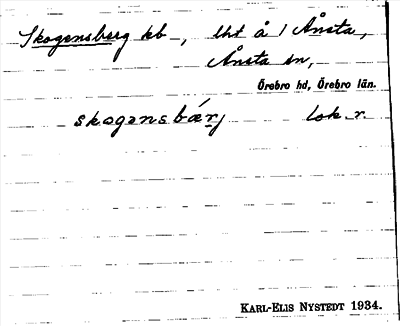 Skogensberg hb, lht å 1 Ånsta,
Ånsta sn,
Örebro hd, Örebro län.
skogənsbær̨j lok. r.
KARL-ELIS NYSTEDT 1934.